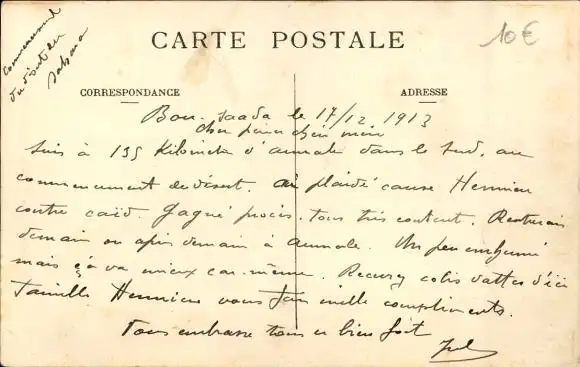 commencement
du désert du
Sahara
10€
CARTE POSTALE
CORRESPONDANCE
ADRESSE
Bou-Saada le 17/12 1913
cher père chère mère
Suis à 135 Kilomètr d'aumale dans le Sud, au
commencement de désert. ai plaidé cause Hennieu
contre caïd. Gagné procès. tous très content. Rentrerais
demain ou après demain à aumale. Un peu enrhumé
mais ça va mieux car-même. Recevez colis dattes d'ici
Famille Hennieu vous fait mille compliments.
Vous embrasse tous es bien fort